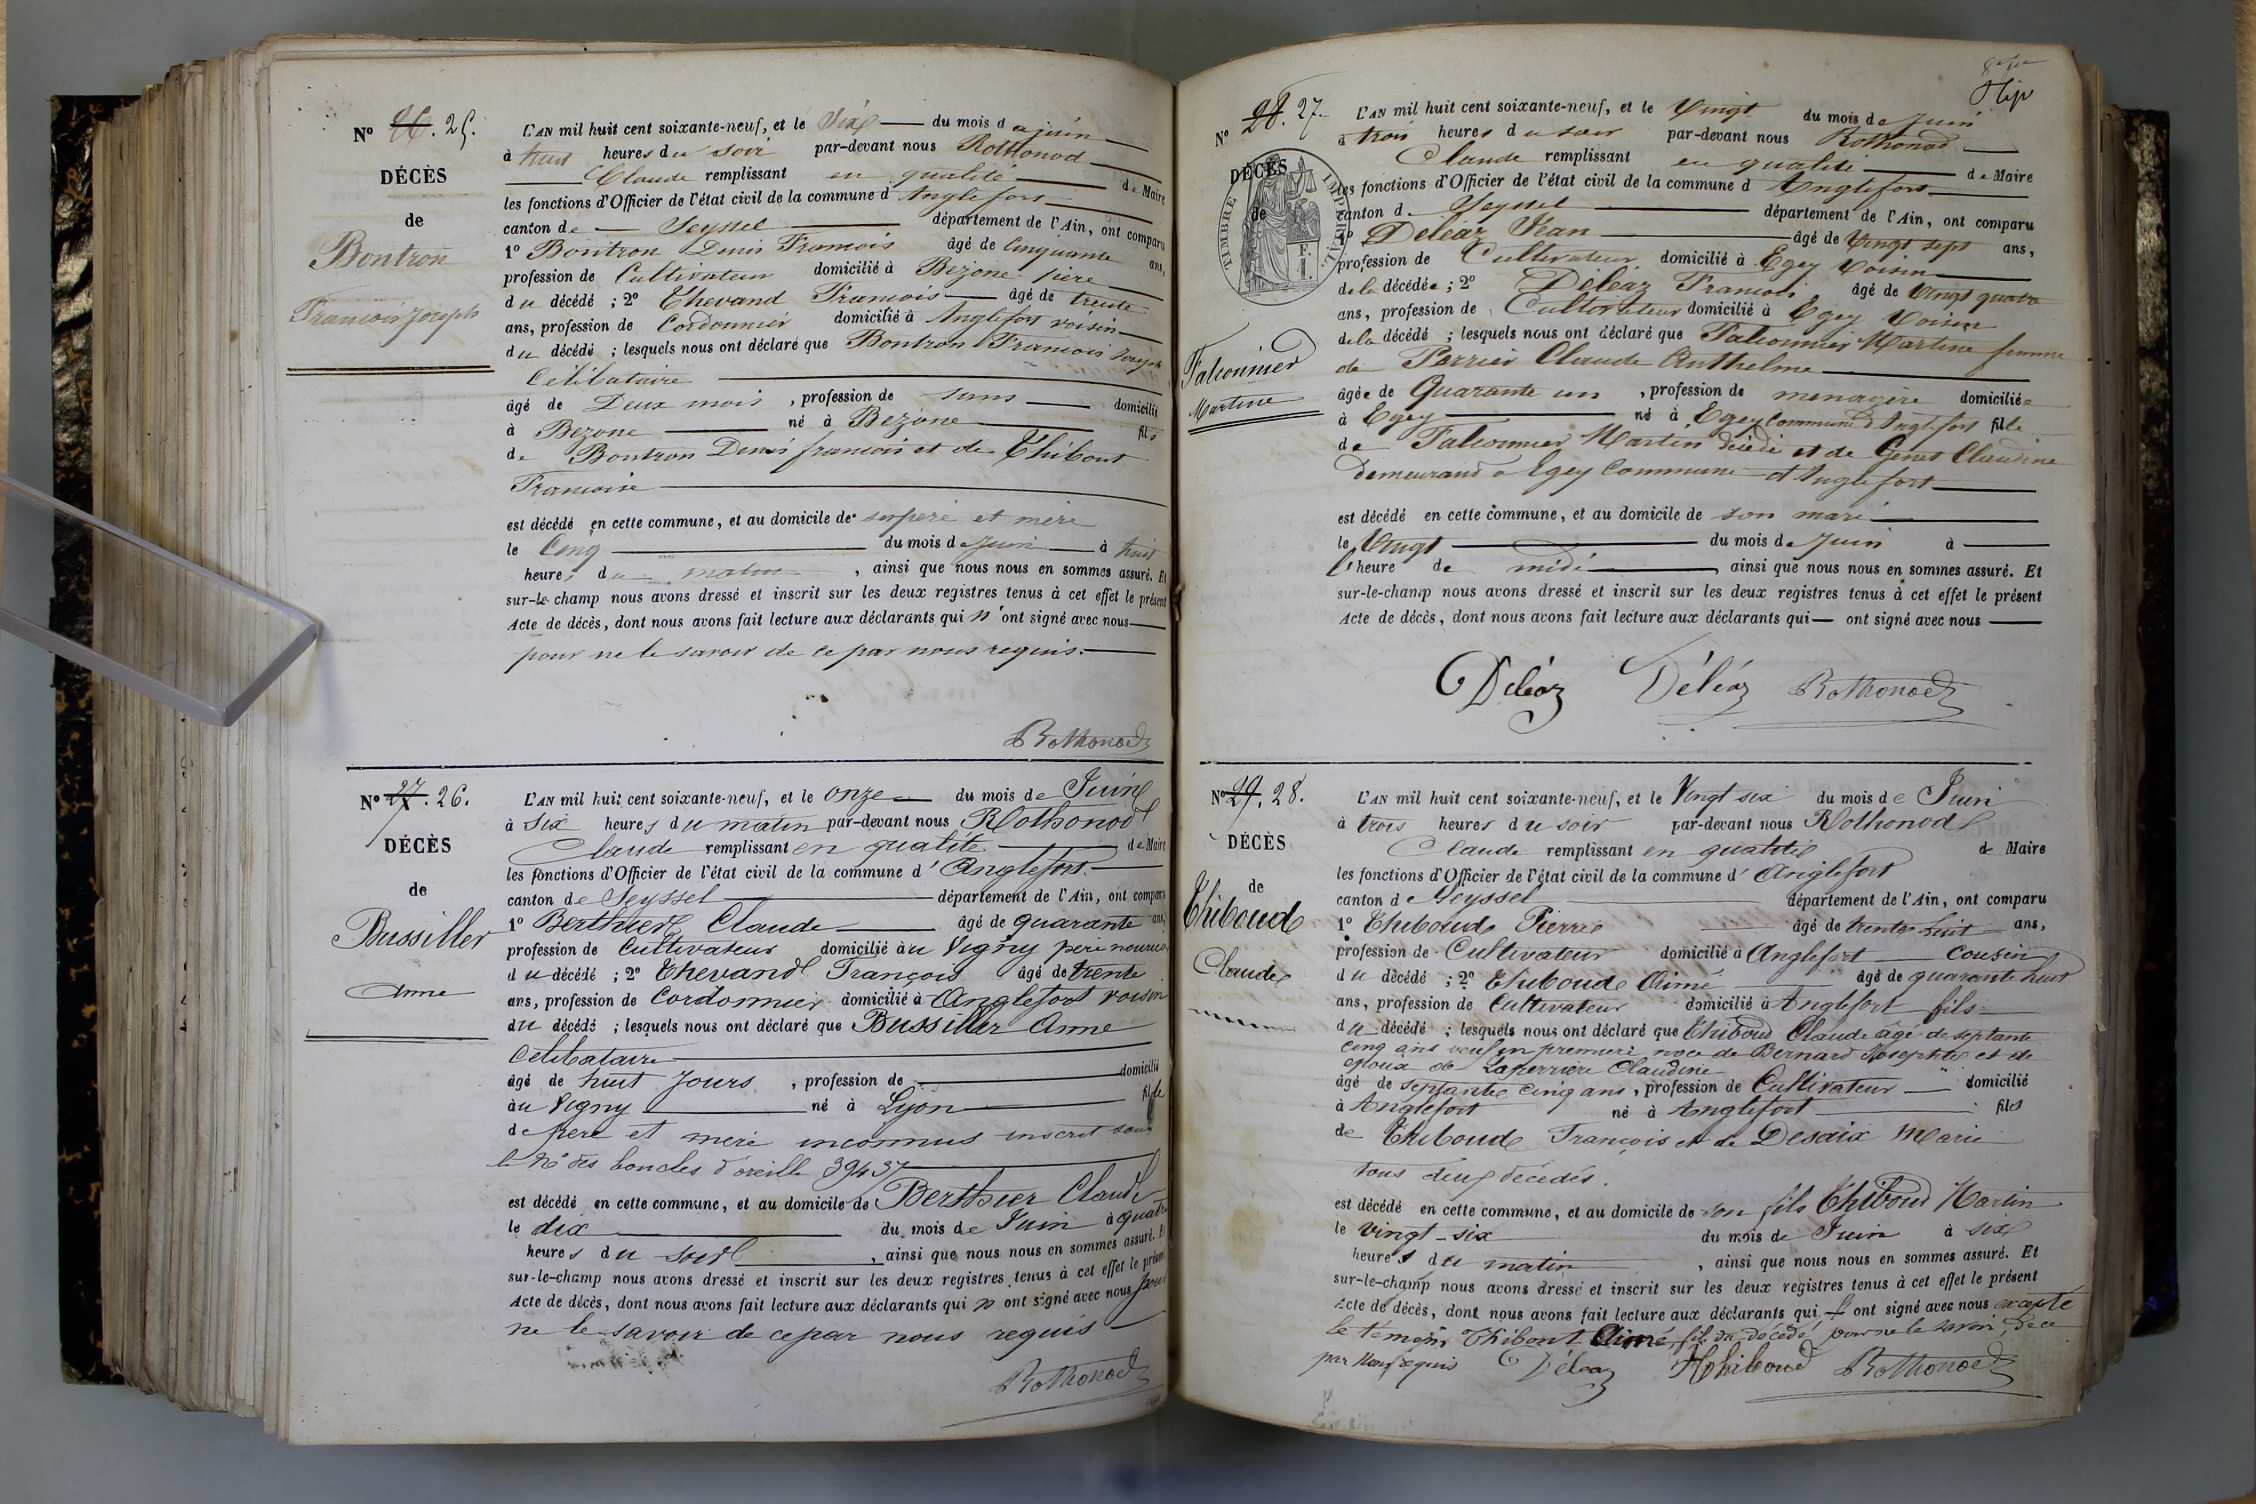 N° 26. 25.
DÉCÈS
de
Bontron
François Joseph
L'AN mil huit cent soixante-neuf, et le Six du mois de juin
à huit heures du soir par-devant nous Rothonod
Claude remplissant en qualité de Maire
les fonctions d'Officier de l'état civil de la commune d'Anglefort
canton de Seyssel département de l'Ain, ont comparu
1° Bontron Denis François âgé de Cinquante ans,
profession de Cultivateur domicilié à Bezone père
du décédé ; 2° Thevand François âgé de trente
ans, profession de Cordonnier domicilié à Anglefort voisin
du décédé ; lesquels nous ont déclaré que Bontron François Joseph
Célibataire
âgé de Deux mois , profession de sans domicilié
à Bezone né à Bezone fils
de Bontron Denis françois et de Thibout
Françoise
est décédé en cette commune, et au domicile de ses père et mère
le Cinq du mois de Juin à huit
heures du matin , ainsi que nous nous en sommes assuré. Et
sur-le-champ nous avons dressé et inscrit sur les deux registres tenus à cet effet le présent
Acte de décès, dont nous avons fait lecture aux déclarants qui n'ont signé avec nous
pour ne le savoir de ce par nous requis.
Rothonod
N° 27. 26.
DÉCÈS
de
Bussiller
Anne
L'AN mil huit cent soixante-neuf, et le onze du mois de Juin
à Six heures du matin par-devant nous Rothonod
Claude remplissant en qualité de Maire
les fonctions d'Officier de l'état civil de la commune d'Anglefort.
canton de Seyssel département de l'Ain, ont comparu
1° Berthier Claude âgé de quarante ans,
profession de Cultivateur domicilié au Vigny père nourricier
du décédé ; 2° Thevand François âgé de trente
ans, profession de Cordonnier domicilié à Anglefort voisin
du décédé ; lesquels nous ont déclaré que Bussiller Anne
Célibataire
âgé de huit Jours , profession de domicilié
au Vigny né à Lyon fille
de père et mère inconnus inscrit sous
le N° des boucles d'oreille 39437
est décédé en cette commune, et au domicile de Berthier Claude
le dix du mois de Juin à quatre
heures du soir , ainsi que nous nous en sommes assuré. Et
sur-le-champ nous avons dressé et inscrit sur les deux registres tenus à cet effet le présent
Acte de décès, dont nous avons fait lecture aux déclarants qui n'ont signé avec nous pour
ne le savoir de ce par nous requis
Rothonod
N° 28. 27.
DÉCÈS
de
TIMBRE IMPÉRIAL
Falconnier
Martine
L'AN mil huit cent soixante-neuf, et le Vingt du mois de Juin
à trois heures du soir par-devant nous Rothonod
Claude remplissant en qualité de Maire
les fonctions d'Officier de l'état civil de la commune d'Anglefort
canton de Seyssel département de l'Ain, ont comparu
1° Deléaz Jean âgé de Vingt sept ans,
profession de Cultivateur domicilié à Egey Voisin
de la décédée ; 2° Déléaz François âgé de Vingt quatre
ans, profession de Cultivateur domicilié à Egey Voisin
de la décédé ; lesquels nous ont déclaré que Falconnier Martine femme
de Perrier Claude Anthelme
âgée de Quarante un , profession de menagère domiciliée
à Egey né à Egey commune d'Anglefort fille
de Falconnier Martin décédé et de Genet Claudine
demeurand à Egey Commune d'Anglefort
est décédé en cette commune, et au domicile de son mari
le Vingt du mois de Juin à
l'heure de midi , ainsi que nous nous en sommes assuré. Et
sur-le-champ nous avons dressé et inscrit sur les deux registres tenus à cet effet le présent
Acte de décès, dont nous avons fait lecture aux déclarants qui ont signé avec nous
Déléaz Déléaz Rothonod
N° 29. 28.
DÉCÈS
de
Thiboud
Claude
L'AN mil huit cent soixante-neuf, et le Vingt six du mois de Juin
à trois heures du soir par-devant nous Rothonod
Claude remplissant en qualité de Maire
les fonctions d'Officier de l'état civil de la commune d'Anglefort
canton de Seyssel département de l'Ain, ont comparu
1° Thiboud Pierre âgé de trente huit ans,
profession de Cultivateur domicilié à Anglefort cousin
du décédé ; 2° Thiboud Aimé âgé de quarante huit
ans, profession de Cultivateur domicilié à Anglefort fils
du décédé ; lesquels nous ont déclaré que Thiboud Claude âgé de septante
cinq ans veuf en première noce de Bernard Josephte et de
époux de Laperrière Claudine
âgé de septante cinq ans, profession de Cultivateur domicilié
à Anglefort né à Anglefort fils
de Thiboud François et de Desaix Marie
tous deux décédés.
est décédé en cette commune, et au domicile de son fils Thiboud Martin
le vingt-six du mois de Juin à six
heures du matin , ainsi que nous nous en sommes assuré. Et
sur-le-champ nous avons dressé et inscrit sur les deux registres tenus à cet effet le présent
Acte de décès, dont nous avons fait lecture aux déclarants qui ont signé avec nous excepté
le témoin Thibout Aimé fils du décédé pour ne le savoir, de ce
par Nous requis Déléaz Thiboud Rothonod